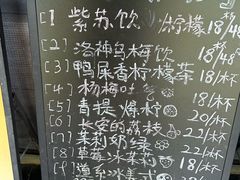 [1] 紫苏饮 柠檬 18/48
[2] 洛神乌梅饮 18/48
[3] 鸭屎香柠檬茶 18/杯
[4] 杨梅吐 18/杯
[5] 青提爆柠 20/杯
[6] 长安的荔枝 22/杯
[7] 茉莉奶绿 22/杯
[8] 草莓冰茉莉 18/杯
冰美式 18/杯